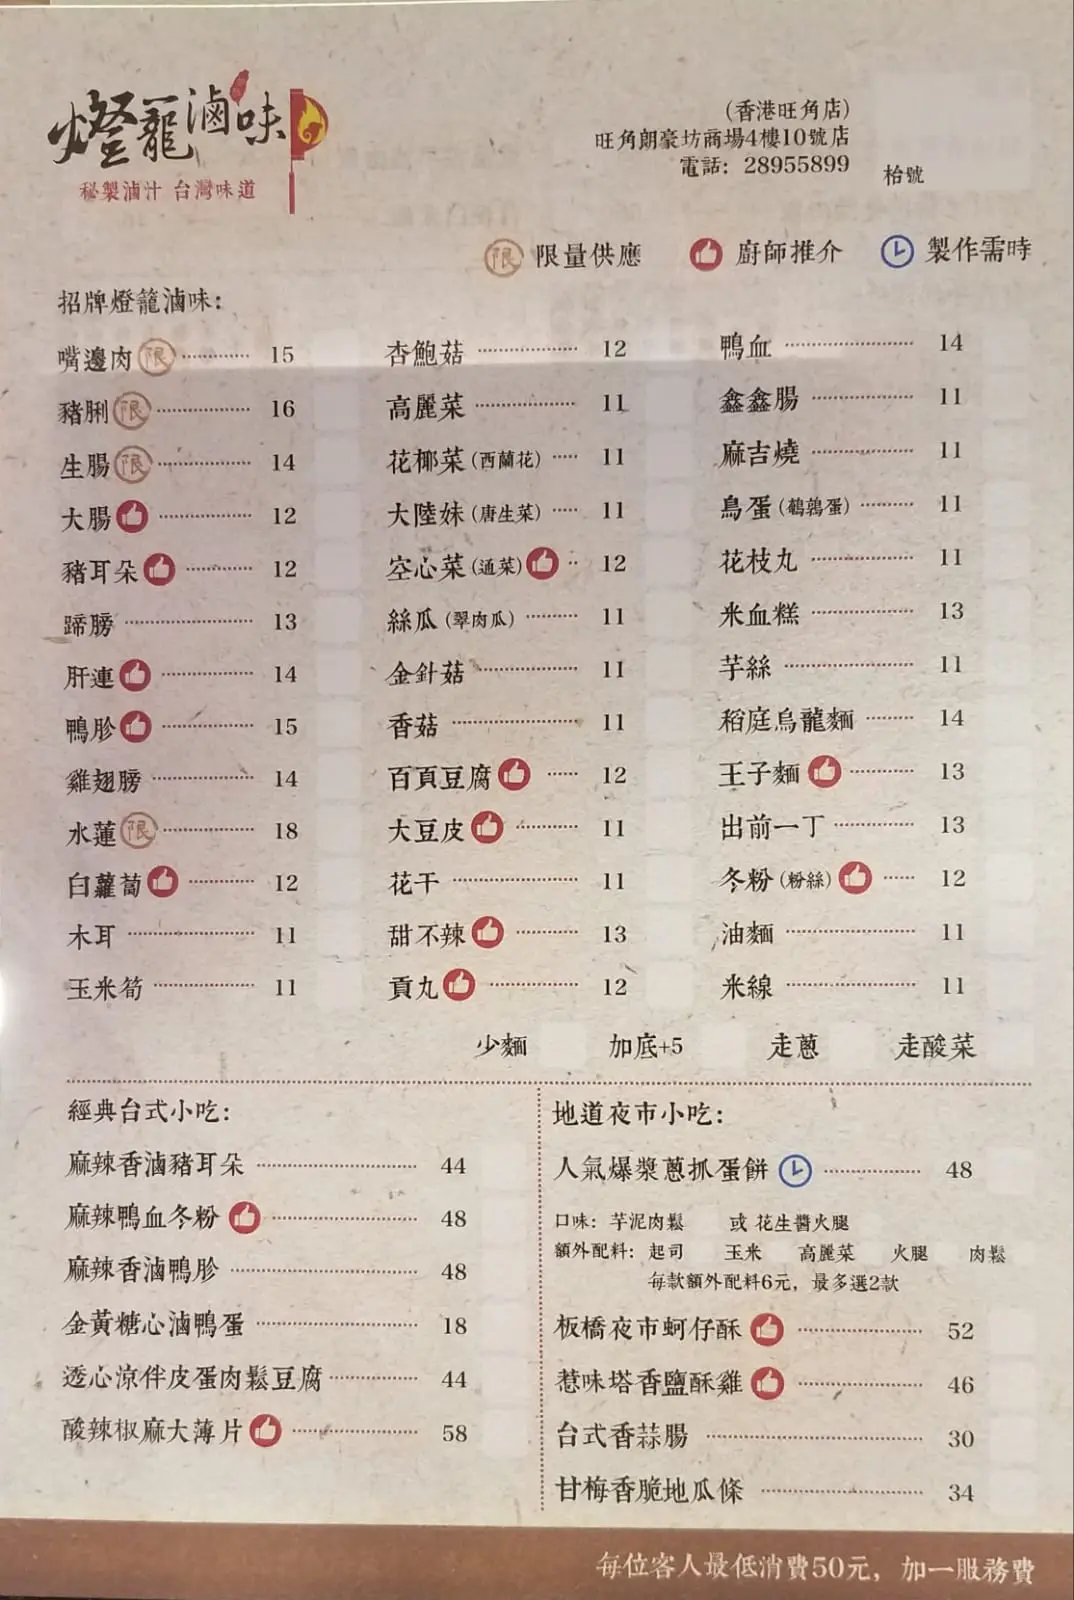 燈籠滷味
秘製滷汁 台灣味道
(香港旺角店)
旺角朗豪坊商場4樓10號店
電話：28955899
枱號
限 限量供應 廚師推介 製作需時
招牌燈籠滷味：
嘴邊肉 限 15
豬脷 限 16
生腸 限 14
大腸 12
豬耳朵 12
蹄膀 13
肝連 14
鴨胗 15
雞翅膀 14
水蓮 限 18
白蘿蔔 12
木耳 11
玉米筍 11
杏鮑菇 12
高麗菜 11
花椰菜 (西蘭花) 11
大陸妹 (唐生菜) 11
空心菜 (通菜) 12
絲瓜 (翠肉瓜) 11
金針菇 11
香菇 11
百頁豆腐 12
大豆皮 11
花干 11
甜不辣 13
貢丸 12
鴨血 14
鑫鑫腸 11
麻吉燒 11
鳥蛋 (鵪鶉蛋) 11
花枝丸 11
米血糕 13
芋絲 11
稻庭烏龍麵 14
王子麵 13
出前一丁 13
冬粉 (粉絲) 12
油麵 11
米線 11
少麵 加底+5 走蔥 走酸菜
經典台式小吃：
麻辣香滷豬耳朵 44
麻辣鴨血冬粉 48
麻辣香滷鴨胗 48
金黃糖心滷鴨蛋 18
透心涼伴皮蛋肉鬆豆腐 44
酸辣椒麻大薄片 58
地道夜市小吃：
人氣爆漿蔥抓蛋餅 48
口味：芋泥肉鬆 或 花生醬火腿
額外配料：起司 玉米 高麗菜 火腿 肉鬆
每款額外配料6元，最多選2款
板橋夜市蚵仔酥 52
惹味塔香鹽酥雞 46
台式香蒜腸 30
甘梅香脆地瓜條 34
每位客人最低消費50元，加一服務費